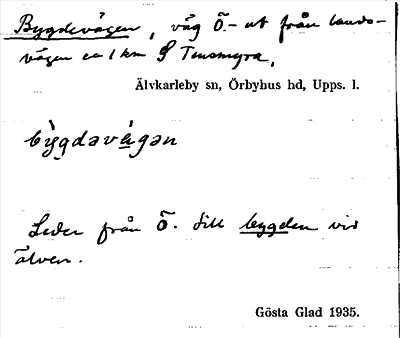 Bygdevägen, väg Ö.- ut från lands-
vägen ca 1 km S Tensmyra,
Älvkarleby sn, Örbyhus hd, Upps. l.
bygdavägan
Leder från Ö. till bygden vid
älven.
Gösta Glad 1935.